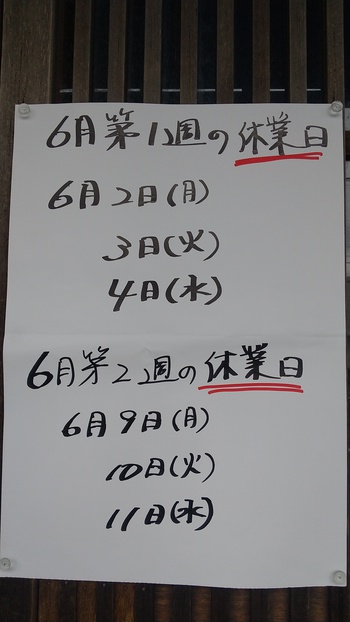 6月第1週の休業日
6月2日(月)
3日(火)
4日(水)
6月第2週の休業日
6月9日(月)
10日(火)
11日(水)